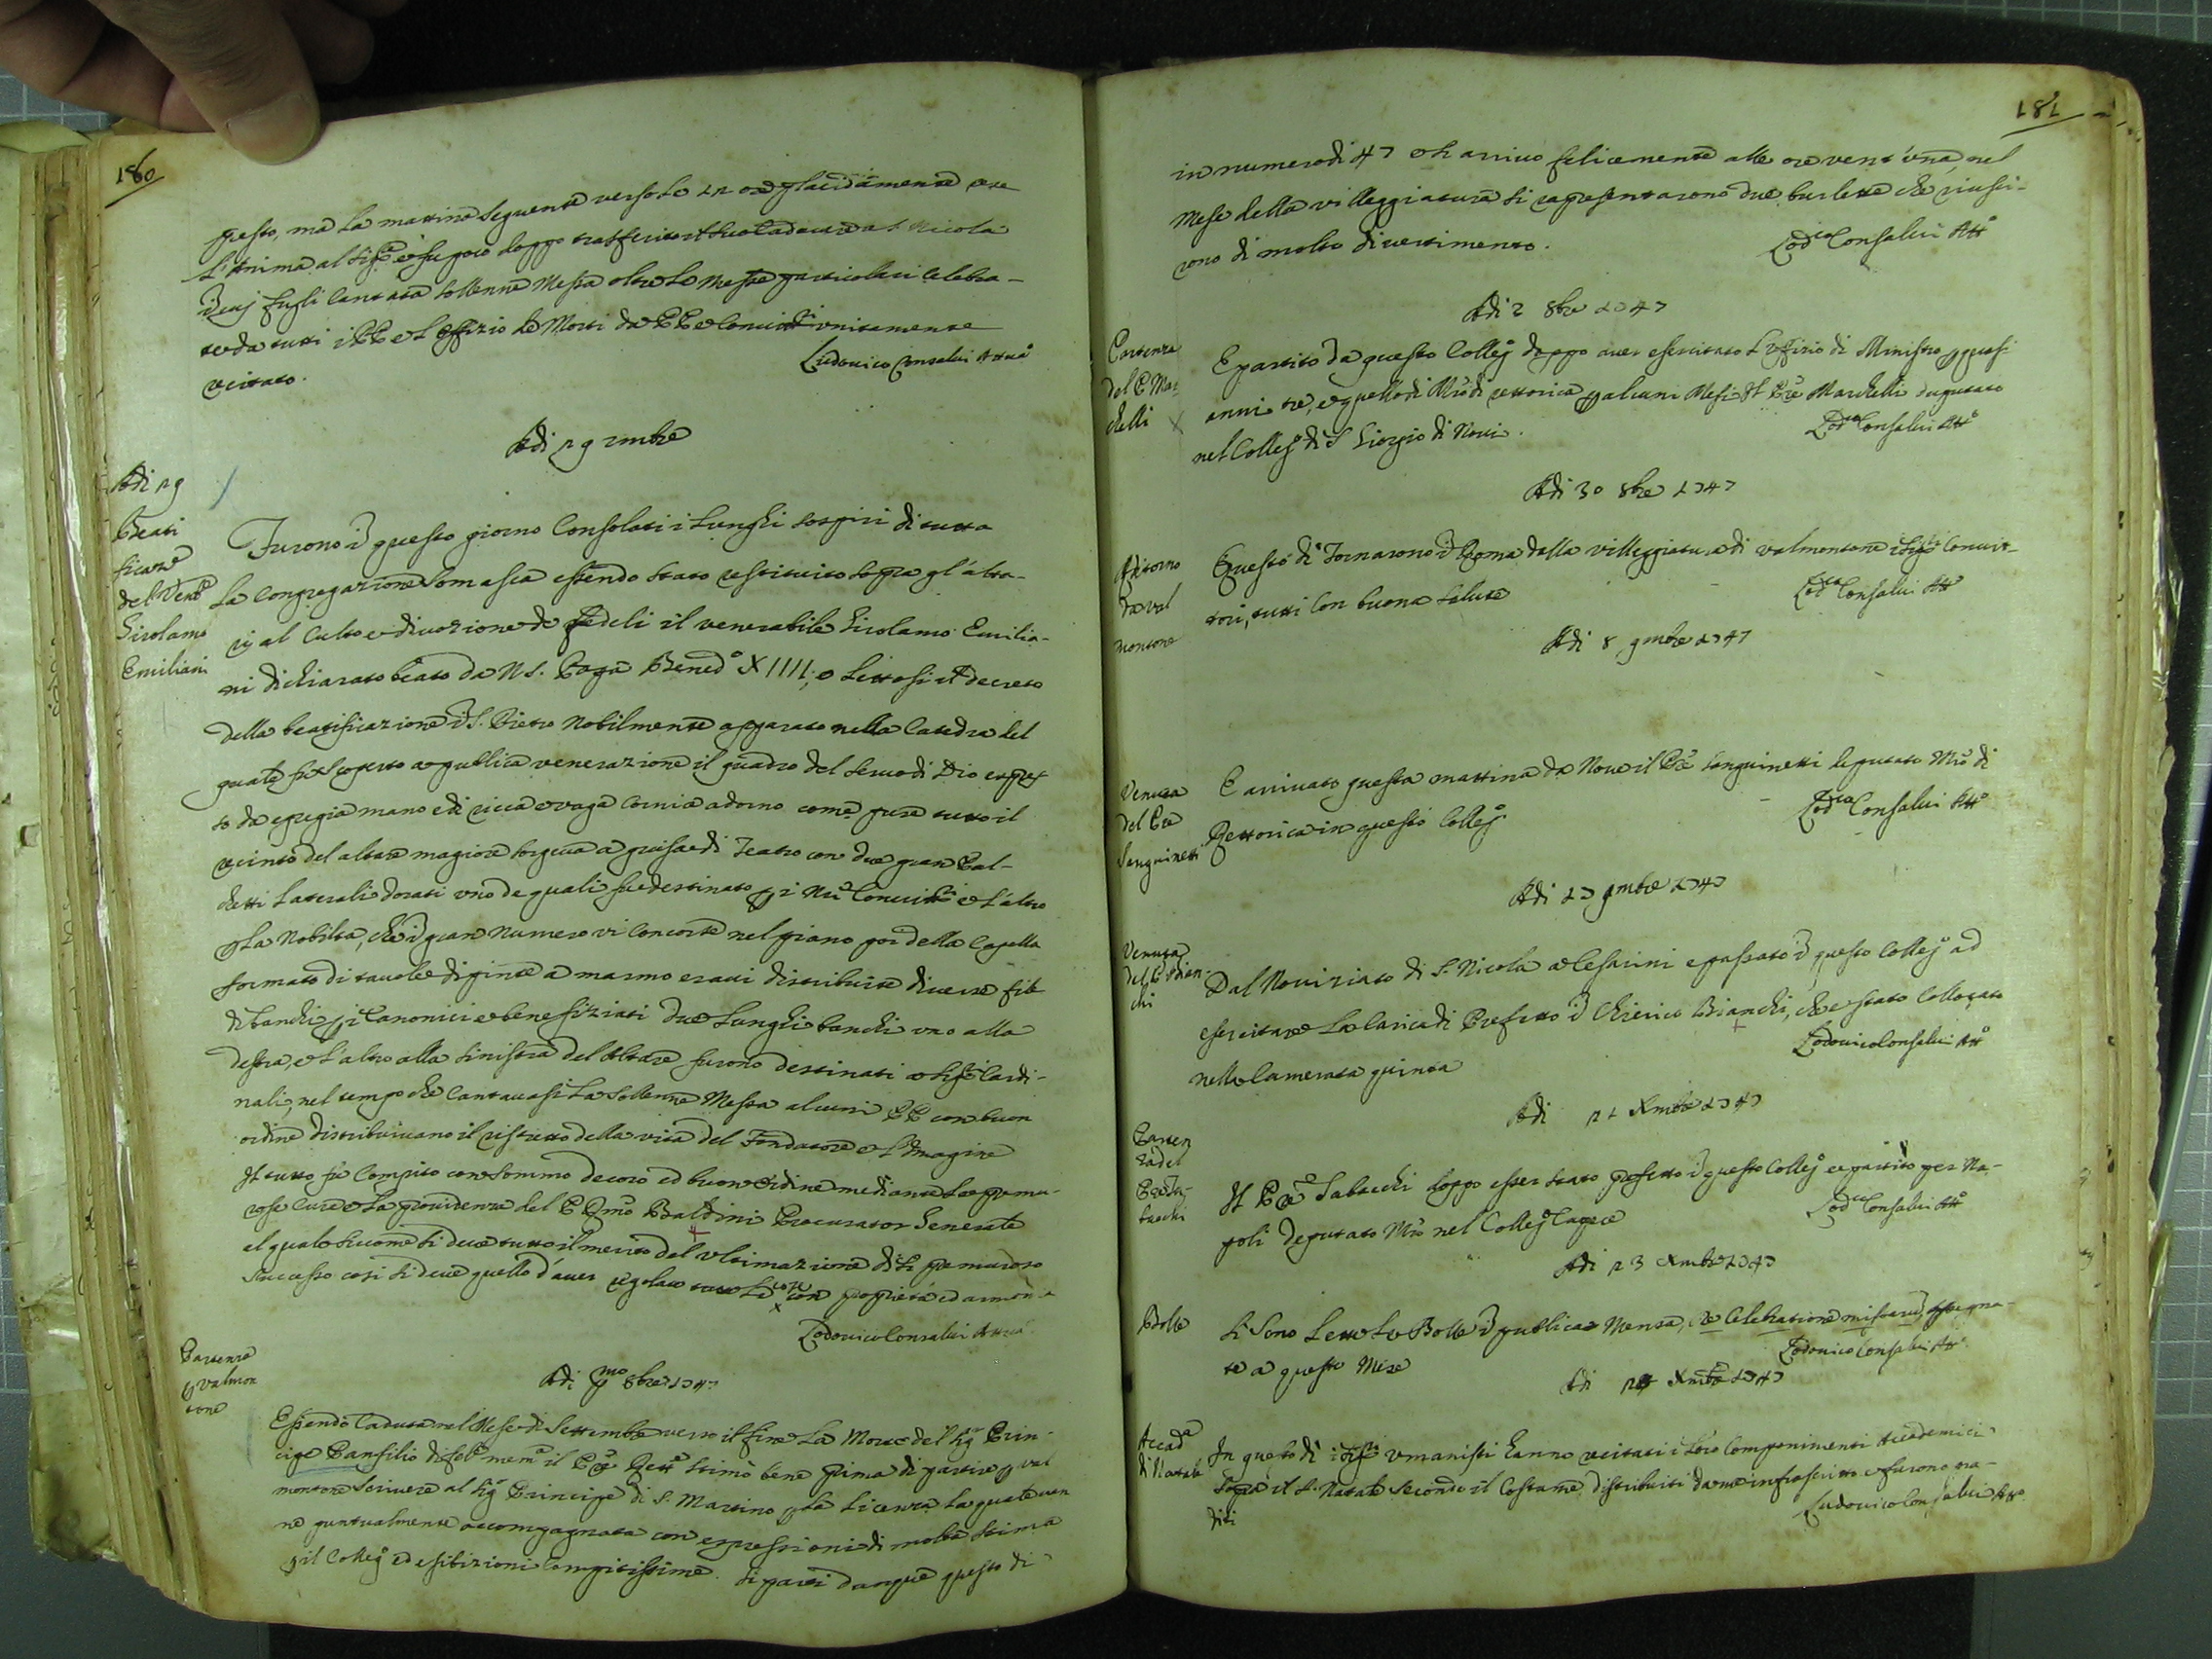 180
presto, ma la mattina seguente verso le 12 ore placidamente rese
l'Anima al Sig.re e fu poco doppo trasferito il suo Cadavere a S. Nicola
dove fugli Cantata sollenne Messa oltre le Messe particolari celebra-
te da tutti i PP e l'offizio de Morti da PP e Convitti unitamente
recitato.
Ludovico Consalvi Attuo
Adi 29 7mbre
Adi 29
Beati
ficaze
del Vene
Girolamo
Emiliani
Furono in questo giorno Consolati i Lunghi sospiri di tutta
La Congregazione Somasca essendo stato restituito sopra gl'alta-
ri al Culto e divozione de fedeli il venerabile Girolamo Emilia-
ni dichiarato beato da N S. Papa Bened.o XIIII; e Lettosi il decreto
della beatificazione in S. Pietro Nobilmente apparato nella Catedra del
quale fu scoperto a publica venerazione il quadro del Servo di Dio espres
so da egregia mano e di ricca e vaga Cornice adorno come pure tutto il
recinto del altare magiore sorgeva a guisa di Teatro con due gran Pal-
chetti Laterali dorati uno de quali fu destinato p i Nri Convitti e l'altro
p La Nobiltà, che in gran Numero vi Concorse nel piano poi della Capella
formato di tavole dipinte a marmo eravi distribuite diverse file
di banchi p i Canonici e benefiziati due Lunghi banchi uno alla
destra, e l'altro alla sinistra del Altare furono destinati a Sigri Cardi-
nali, nel tempo che Cantavasi La Sollenne Messa alcuni PP con buon
ordine distribuivano il ristretto della vita del Fondatore e l'Imagine
Il tutto fù Compito con sommo decoro ed buon ordine mediante Le premu-
rose Cure e La providenza del P Rmo Baldini Procurator Generale
al quale siccome si deve tutto il merito del ultimazione di si premuroso
successo così si deve quello d'aver regolato tutte Le cose con proprietà ed armonia
Lodovico Consalvi Attuo
Partenza
p Valmon
tone
Adi pmo 8bre 1747
Essendo Caduta nel Mese di Settembre verso il fine La Morte del Sig. Prin-
cipe Panfilio di fel. mem. il Pre Rett.e stimò bene prima di partire p val
montone Scrivere al Sig. Principe di S. Martino p La Licenza La quale ven
ne puntualmente accompagnata con espressioni di molta stima
p il Colleg.o ed esibizioni Compitissime. Si partì dunque questo dì
181
in numero di 47 e si arrivo felicemente alle ore vent'una, nel
Mese della villeggiatura si rapresentarono due burlette che riusci-
rono di molto divertimento.
Lod.co Consalvi Atto
Adi 2 8bre 1747
Partenza
del P Mar
chelli
E partito da questo Colleg.o doppo aver esercitato l'offizio di Ministro p quasi
anni tre, e quello di Mro di rettorica p alcuni Mesi Il Pre Marchelli deputato
nel Colleg.o di S Giorgio di Novi.
Lod.co Consalvi Atto
Adi 30 8bre 1747
Ritorno
da val
montone
Questo dì Tornarono in Roma dalla villeggiatura di valmontone i Sigri Convit-
tori, tutti Con buona salute
Lod.co Consalvi Atto
Adi 8 9mbre 1747
Venuta
del Pre
Sanguinetti
E arrivato questa mattina da Nove il Pre Sanguinetti deputato Mro di
Rettorica in questo Colleg.o
Lod.co Consalvi Atto
Adi 17 9mbre 1747
Venuta
del Ch Bian-
chi
Dal Noviziato di S. Nicola a Cesarini e passato in questo Colleg.o ad
esercitare La Carica di Prefetto il Chierico Bianchi, che e stato Collocato
nella Camerata quinta
Lodovico Consalvi Atto
Adi 21 Xmbre 1747
Parten
za del
Pre Sa-
bucchi
Il Pre Sabucchi doppo esser stato prefetto in questo Colleg.o e partito per Na-
poli deputato Mro nel Colleg.o Capece
Lod.co Consalvi Atto
Adi 23 Xmbre 1747
Bolle
Si sono Lette Le Bolle in publica Mensa, De Celebratione missarum, assegna-
te a questo Mese
Lodovico Consalvi Atto
Adi 24 Xmbre 1747
Accad.a
di Natale
In questo dì i Sigri Umanisti hanno recitati i Loro Componimenti Accademici
Sopra il S. Natale secondo il Costume, distribuiti da me infrascritto e furono gra-
diti
Ludovico Consalvi Atto